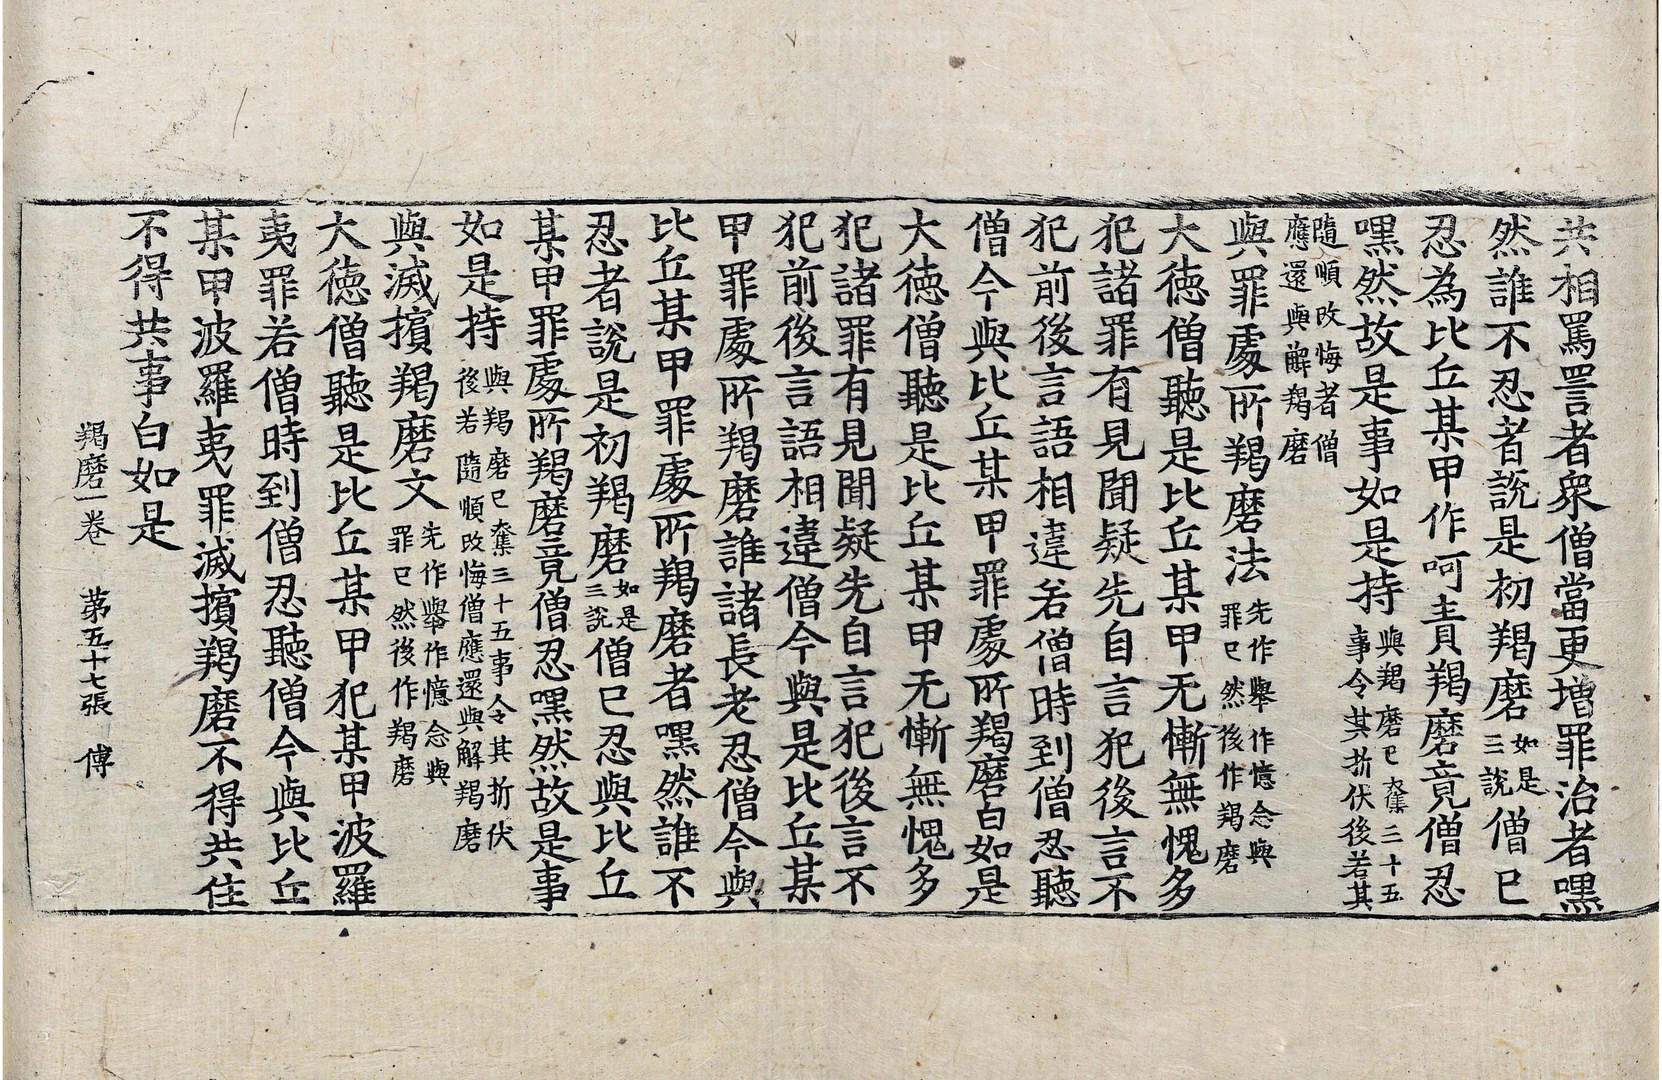 共相罵詈者衆僧當更增罪治者嘿
然誰不忍者說是初羯磨如是三說僧已
忍為比丘某甲作呵責羯磨竟僧忍
嘿然故是事如是持與羯磨已奪三十五事令其折伏後若其
隨順改悔者僧應還與解羯磨
與罪處所羯磨法先作舉作憶念與罪已然後作羯磨
大德僧聽是比丘某甲无慚無愧多
犯諸罪有見聞疑先自言犯後言不
犯前後言語相違若僧時到僧忍聽
僧今與比丘某甲罪處所羯磨白如是
大德僧聽是比丘某甲无慚無愧多
犯諸罪有見聞疑先自言犯後言不
犯前後言語相違僧今與是比丘某
甲罪處所羯磨誰諸長老忍僧今與
比丘某甲罪處所羯磨者嘿然誰不
忍者說是初羯磨如是三說僧已忍與比丘
某甲罪處所羯磨竟僧忍嘿然故是事
如是持與羯磨已奪三十五事令其折伏後若隨順改悔僧應還與解羯磨
與滅擯羯磨文先作舉作憶念與罪已然後作羯磨
大德僧聽是比丘某甲犯某甲波羅
夷罪若僧時到僧忍聽僧今與比丘
某甲波羅夷罪滅擯羯磨不得共住
不得共事白如是
羯磨一卷 第五十七張 傅